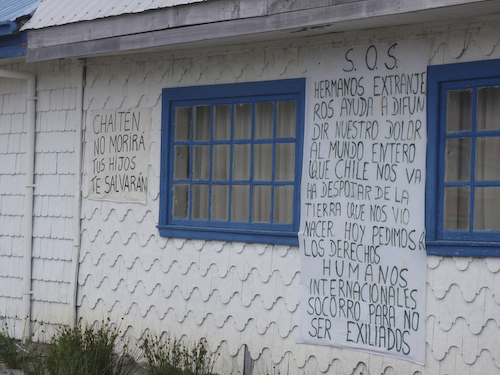 CHAITEN
NO MORIRÁ
TUS HIJOS
TE SALVARÁN
S.O.S.
HERMANOS EXTRANJE
ROS AYUDA A DIFUN
DIR NUESTRO DOLOR
AL MUNDO ENTERO
QUE CHILE NOS VA
HA DESPOTAR DE LA
TIERRA QUE NOS VIO
NACER. HOY PEDIMOS A
LOS DERECHOS
HUMANOS
INTERNACIONALES
SOCORRO PARA NO
SER EXILIADOS